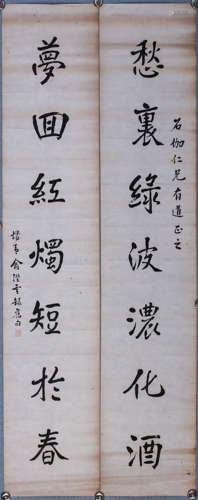 愁裏綠波濃化酒
石伽仁兄有道正之
夢囬紅燭短於春
堦青俞陛雲